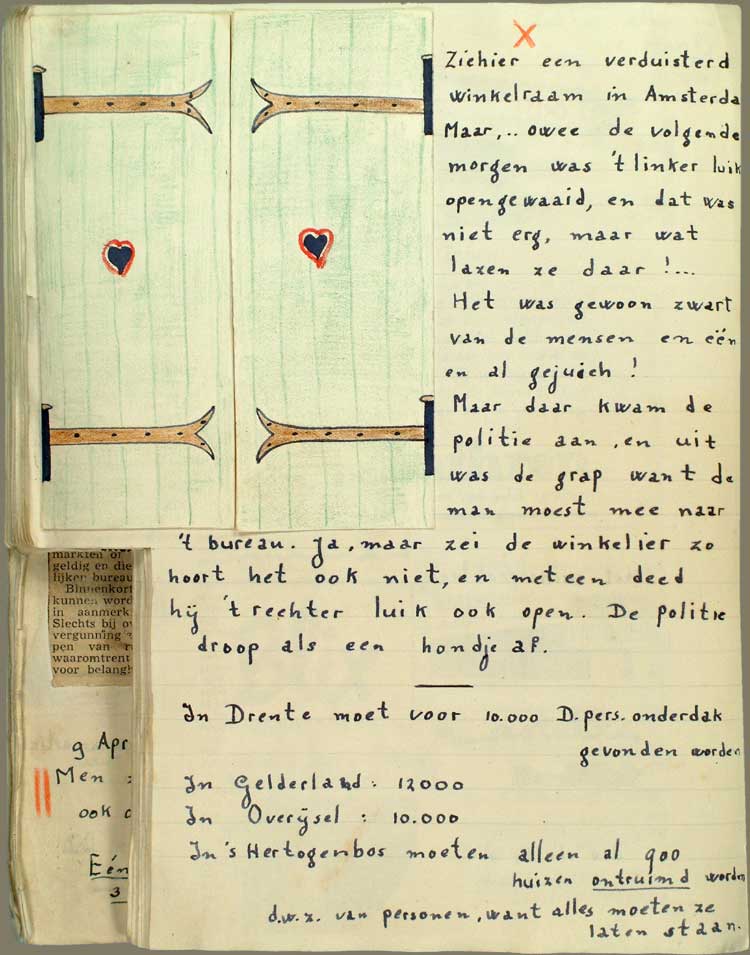 X
Ziehier een verduisterd
winkelraam in Amsterda
Maar,.. owee de volgende
morgen was 't linker luik
opengewaaid, en dat was
niet erg, maar wat
lazen ze daar !...
Het was gewoon zwart
van de mensen en eën
en al gejuich !
Maar daar kwam de
politie aan , en uit
was de grap want de
man moest mee naar
't bureau. Ja, maar zei de winkelier zo
hoort het ook niet, en meteen deed
hij 't rechter luik ook open. De politie
droop als een hondje af.
In Drente moet voor 10.000 D.pers. onderdak
gevonden worden
In Gelderland : 12000
In Overijsel : 10.000
In 's Hertogenbos moeten alleen al 900
huizen ontruimd worden
d.w.z. van personen, want alles moeten ze
laten staan.
markten of
geldig en die
lijker bureau
Binnenkort
kunnen word
in aanmerk
Slechts bij ov
vergunning
pen van
waaromtrent
voor belangh
9 Apr
Men
ook
Eén
3